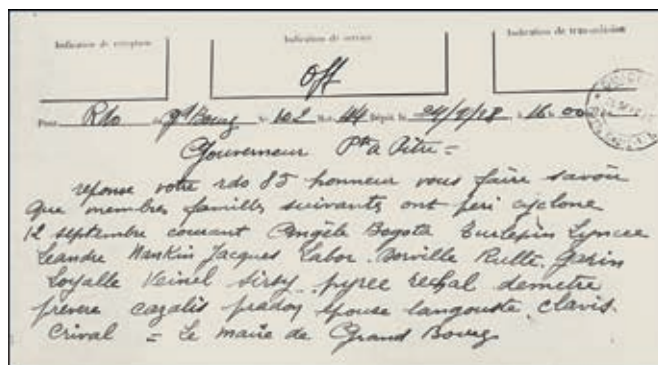 Indication de réception
Indication de service
Indication de transmission
Off
Pour Rdo de Gd Bourg No 102 Mots 44 Dépôt le 24/9/28 à 16 h 00
Gouverneur Pte à Pitre =
réponse votre rdo 85 honneur vous faire savoir
que membres familles suivants ont péri cyclone
12 septembre courant Angèle Bogota Turlepin Lyncee
Leandre Nankin Jacques Labor. Dorville Rultt. Garin
Loyalle Veinel sirsy. pyree rechal demetre
prevere cazalis pradoy épouse langouste. Clavis.
Crival = Le maire de Grand Bourg